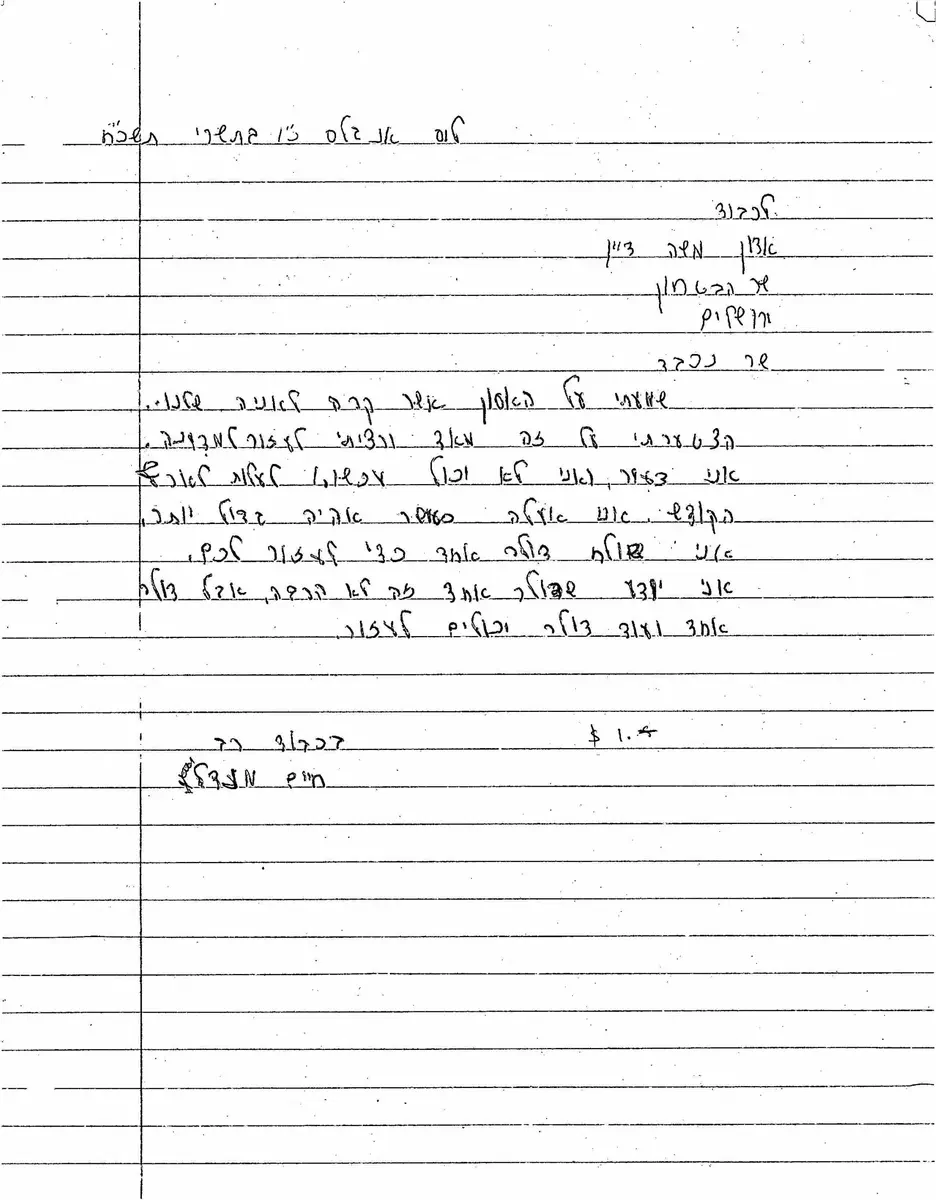 לוס אנגלס כ"ו בתשרי תשכ"ח
לכבוד
אדון משה דיין
שר הבטחון
ירושלים
שר נכבד
שמעתי על האסון אשר קרה לאוניה שלנו.
הצטערתי על זה מאד ורציתי לעזור למדינה.
אני צעיר, ואני לא יכול עכשיו לעלות לארץ
הקודש. אני אעלה כאשר אהיה גדול יותר.
אני שולח דולר אחד כדי לעזור לכם.
אני יודע שדולר אחד זה לא הרבה, אבל דולר
אחד ועוד דולר יכולים לעזור.
$ 1.00 בכבוד רב
חיים